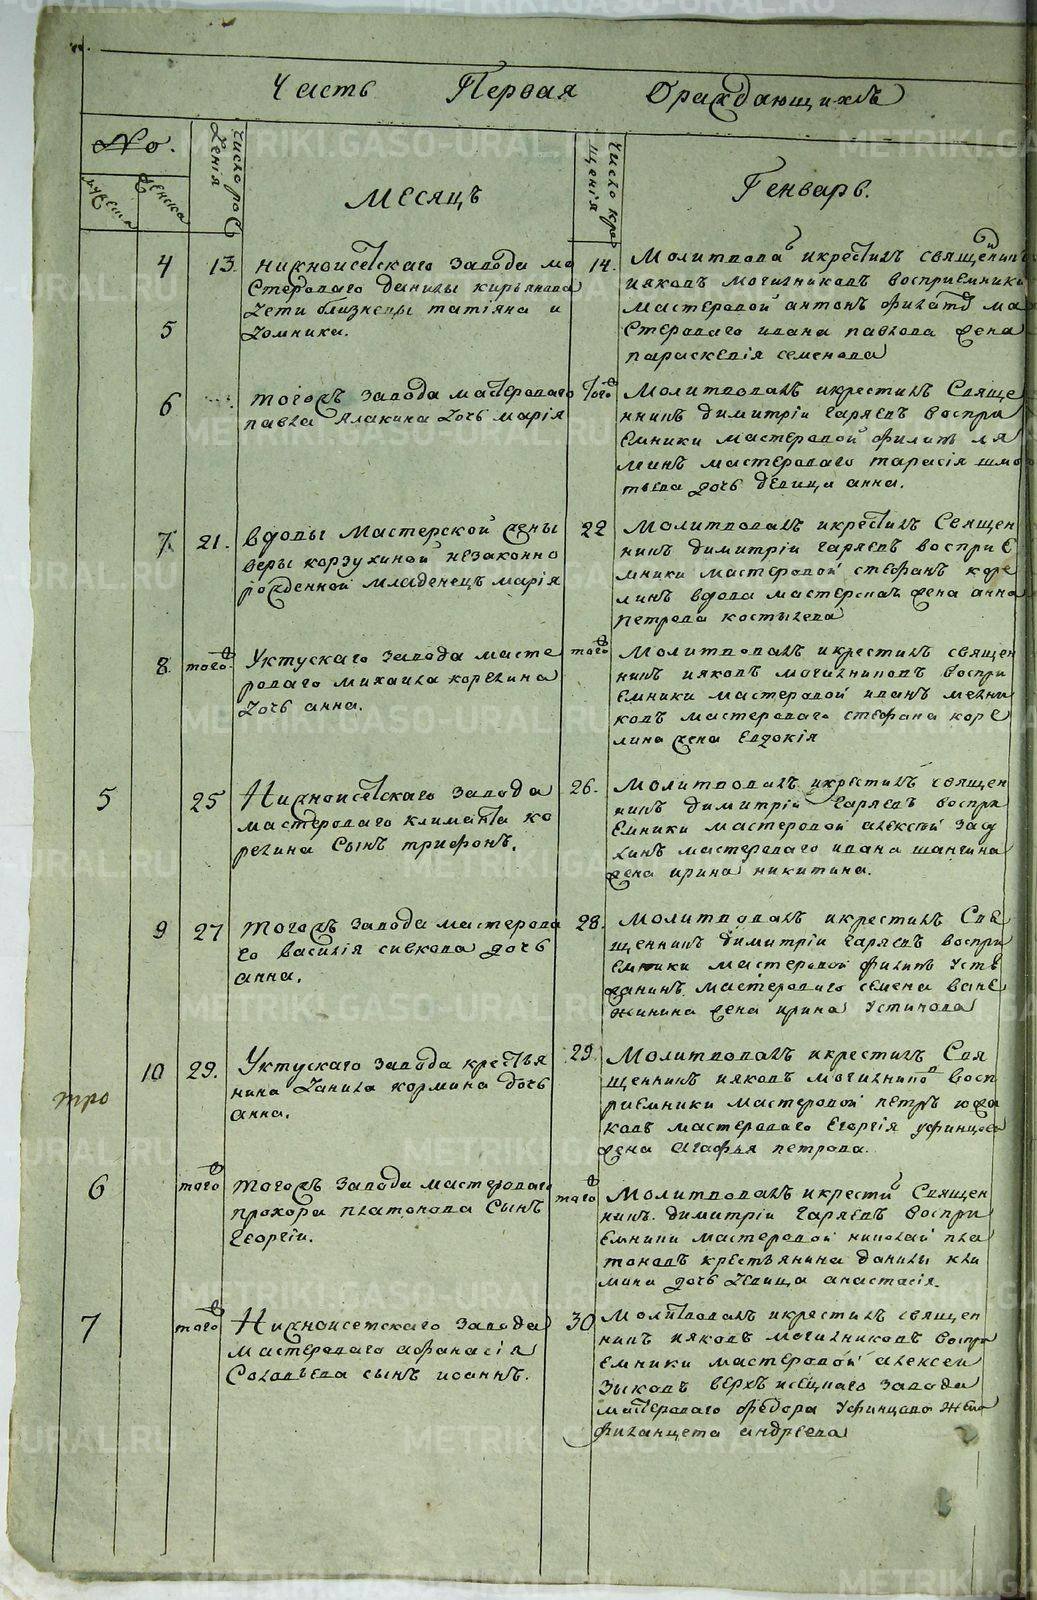 Часть Первая о раждающихъ
No.
мужеска
женска
число рож
денія
Месяцъ
число кре
щенія
Генварь.
4
5
13.
нижноисетскаго завода ма
стероваго данилы кирьянова
дети близнецы татіяна и
домника.
14.
Молитвова и крестилъ священникъ
ияковъ могилниковъ восприемники
мастеровой антонъ ма
стероваго ивана павлова жена
параскевія семенова
6
тогожъ завода мастероваго
павла ялакина дочь марія
того ж
Молитвовалъ и крестилъ Свяще
нникъ димитріи гаряевъ воспри
емники мастеровой филипъ ля
минъ мастероваго тарасія шмо
тьева дочь девица анна.
7.
21.
вдовы Мастерской жены
веры корзухиной незаконно
рожденной младенецъ марія
22
Молитвовалъ и крестилъ Священ
никъ димитріи гаряевъ восприе
мники мастеровой стефанъ коре
линъ вдова мастерскаъ жена анна
петрова костылева
8.
того ж
Уктускаго завода масте
роваго михаила корелина
дочь анна.
того ж
Молитвовалъ и крестилъ священ
никъ ияковъ могилниковъ воспри
емники мастеровой иванъ мелни
ковъ мастероваго стефана коре
лина жена евдокія
5
25
Нижноисетскаго завода
мастероваго климанта ко
релина Сынъ трифонъ.
26.
Молитвовалъ и крестилъ священ
никъ димитріи гаряевъ воспри
емники мастеровой алексей засу
хинъ мастероваго ивана шангина
жена ирина никитина.
9
27
тогожъ завода мастерова
го василія сивкова дочь
анна.
28.
Молитвовалъ и крестилъ Свя
щенникъ димитріи гаряевъ воспри
емники мастеровой филипъ усть
жанинъ мастероваго семена ване
жинина жена ирина Устинова
10
29.
Уктускаго завода крестья
нина данила кормина дочь
анна.
29.
Молитвовалъ и крестилъ Свя
щенникъ ияковъ могилниковъ восп
риемники мастеровой петръ южа
ковъ мастероваго Егоргія уфинцова
жена Агафья петрова.
тро
6
того ж
тогожъ завода мастероваго
прохора платонова Сынъ
Георгіи.
того ж
Молитвовалъ и крести Священ
никъ димитріи гаряевъ воспри
емники мастеровой николай пла
тоновъ крестьянина данилы кли
мина дочь девица анастасія.
7
того ж
Нижноисетскаго завода
мастероваго афанасія
Соловьева сынъ иоаннъ.
30
Молитвовалъ и крестилъ священ
никъ ияковъ могилниковъ воспри
емники мастеровой алексеи
зыковъ верхъ исецкаго завода
мастероваго федора Уфинцова жена
филанцета андреева
METRIKI.GASO-URAL.RU